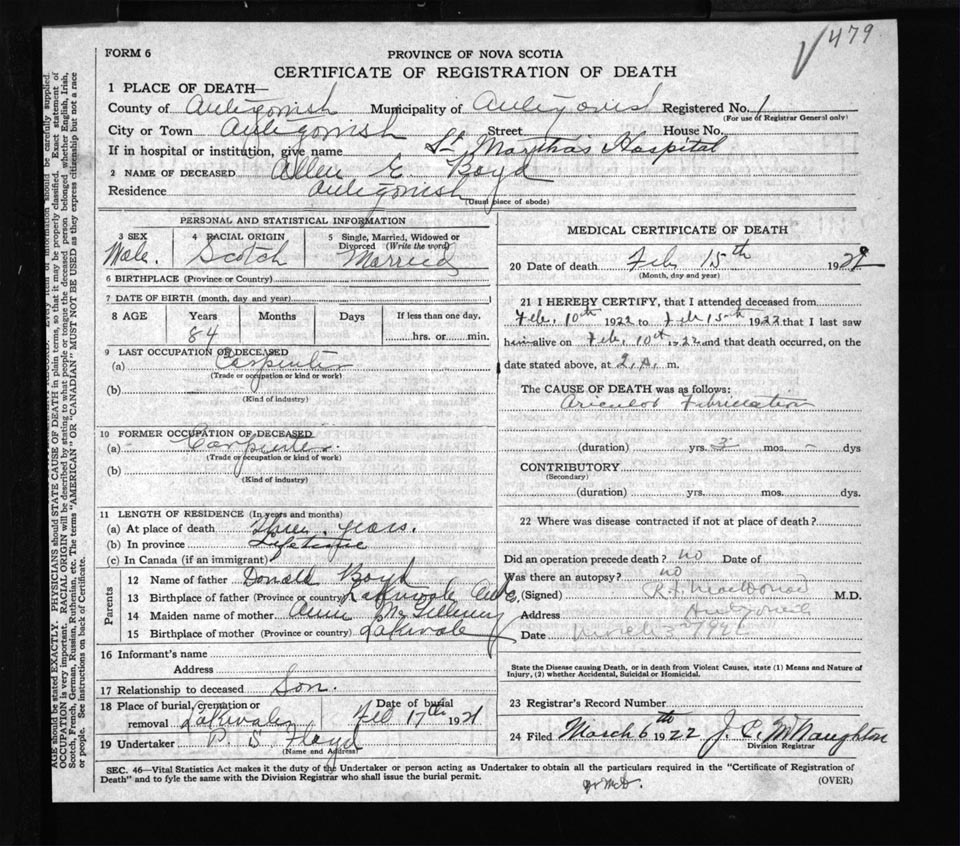 479
FORM 6
PROVINCE OF NOVA SCOTIA
CERTIFICATE OF REGISTRATION OF DEATH
1 PLACE OF DEATH—
County of Antigonish Municipality of Antigonish Registered No. 1
(For use of Registrar General only)
City or Town Antigonish Street House No.
If in hospital or institution, give name St Martha's Hospital
2 NAME OF DECEASED Allen E. Boyd
Residence Antigonish
(Usual place of abode)
PERSONAL AND STATISTICAL INFORMATION
3 SEX Male.
4 RACIAL ORIGIN Scotch
5 Single, Married, Widowed or Divorced (Write the word) Married
6 BIRTHPLACE (Province or Country)
7 DATE OF BIRTH (month, day and year)
8 AGE Years Months Days If less than one day,
84 hrs. or min.
9 LAST OCCUPATION OF DECEASED
(a) Carpenter
(Trade or occupation or kind or work)
(b)
(Kind of industry)
10 FORMER OCCUPATION OF DECEASED
(a) Carpenter
(Trade or occupation or kind of work)
(b)
(Kind of industry)
11 LENGTH OF RESIDENCE (In years and months)
(a) At place of death Three years.
(b) In province Lifetime
(c) In Canada (if an immigrant)
Parents
12 Name of father Donald Boyd
13 Birthplace of father (Province or country) Lakevale
14 Maiden name of mother Annie
15 Birthplace of mother (Province or country) Lakevale
16 Informant's name
Address
17 Relationship to deceased Son.
18 Place of burial, cremation or removal Lakevale
Date of burial Feb 17th 1921
19 Undertaker P. S. Floyd
(Name and Address)
MEDICAL CERTIFICATE OF DEATH
20 Date of death Feb 15th 192
(Month, day and year)
21 I HEREBY CERTIFY, that I attended deceased from
Feb. 10th 1922 to Feb 15th 1922 that I last saw
him alive on Feb. 10th 1922 and that death occurred, on the
date stated above, at 2. A. m.
The CAUSE OF DEATH was as follows:
(duration) yrs. 3 mos. dys
CONTRIBUTORY
(Secondary)
(duration) yrs. mos. dys.
22 Where was disease contracted if not at place of death?
Did an operation precede death? no Date of
Was there an autopsy? no
(Signed) M.D.
Address Antigonish
Date March 3rd 1922
State the Disease causing Death, or in death from Violent Causes, state (1) Means and Nature of
Injury, (2) whether Accidental, Suicidal or Homicidal.
23 Registrar's Record Number
24 Filed March 6th 1922 J. C. McNaughton
Division Registrar
SEC. 46—Vital Statistics Act makes it the duty of the Undertaker or person acting as Undertaker to obtain all the particulars required in the "Certificate of Registration of
Death" and to fyle the same with the Division Registrar who shall issue the burial permit.
(OVER)
AGE should be stated EXACTLY. PHYSICIANS should STATE CAUSE OF DEATH in plain terms, so that it may be properly classified. Exact statement of
OCCUPATION is very important. RACIAL ORIGIN will be described by stating to what people or tongue the deceased person belonged whether English, Irish,
Scotch, French, German, Russian, Ruthenian, etc. The terms "AMERICAN" OR "CANADIAN" MUST NOT BE USED as they express citizenship but not a race
or people. See instructions on back of Certificate.